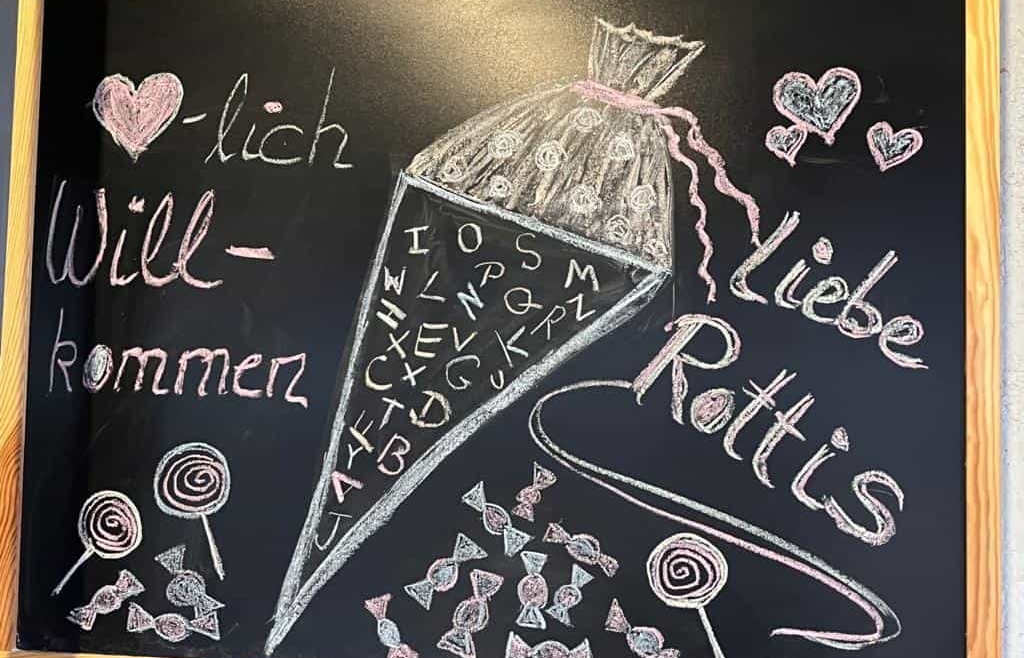 -lich
Will-
kommen
I O S M
W L N P Q R Z
H X E V K
C X G U
T D
F B
A
J
Liebe
Rottis